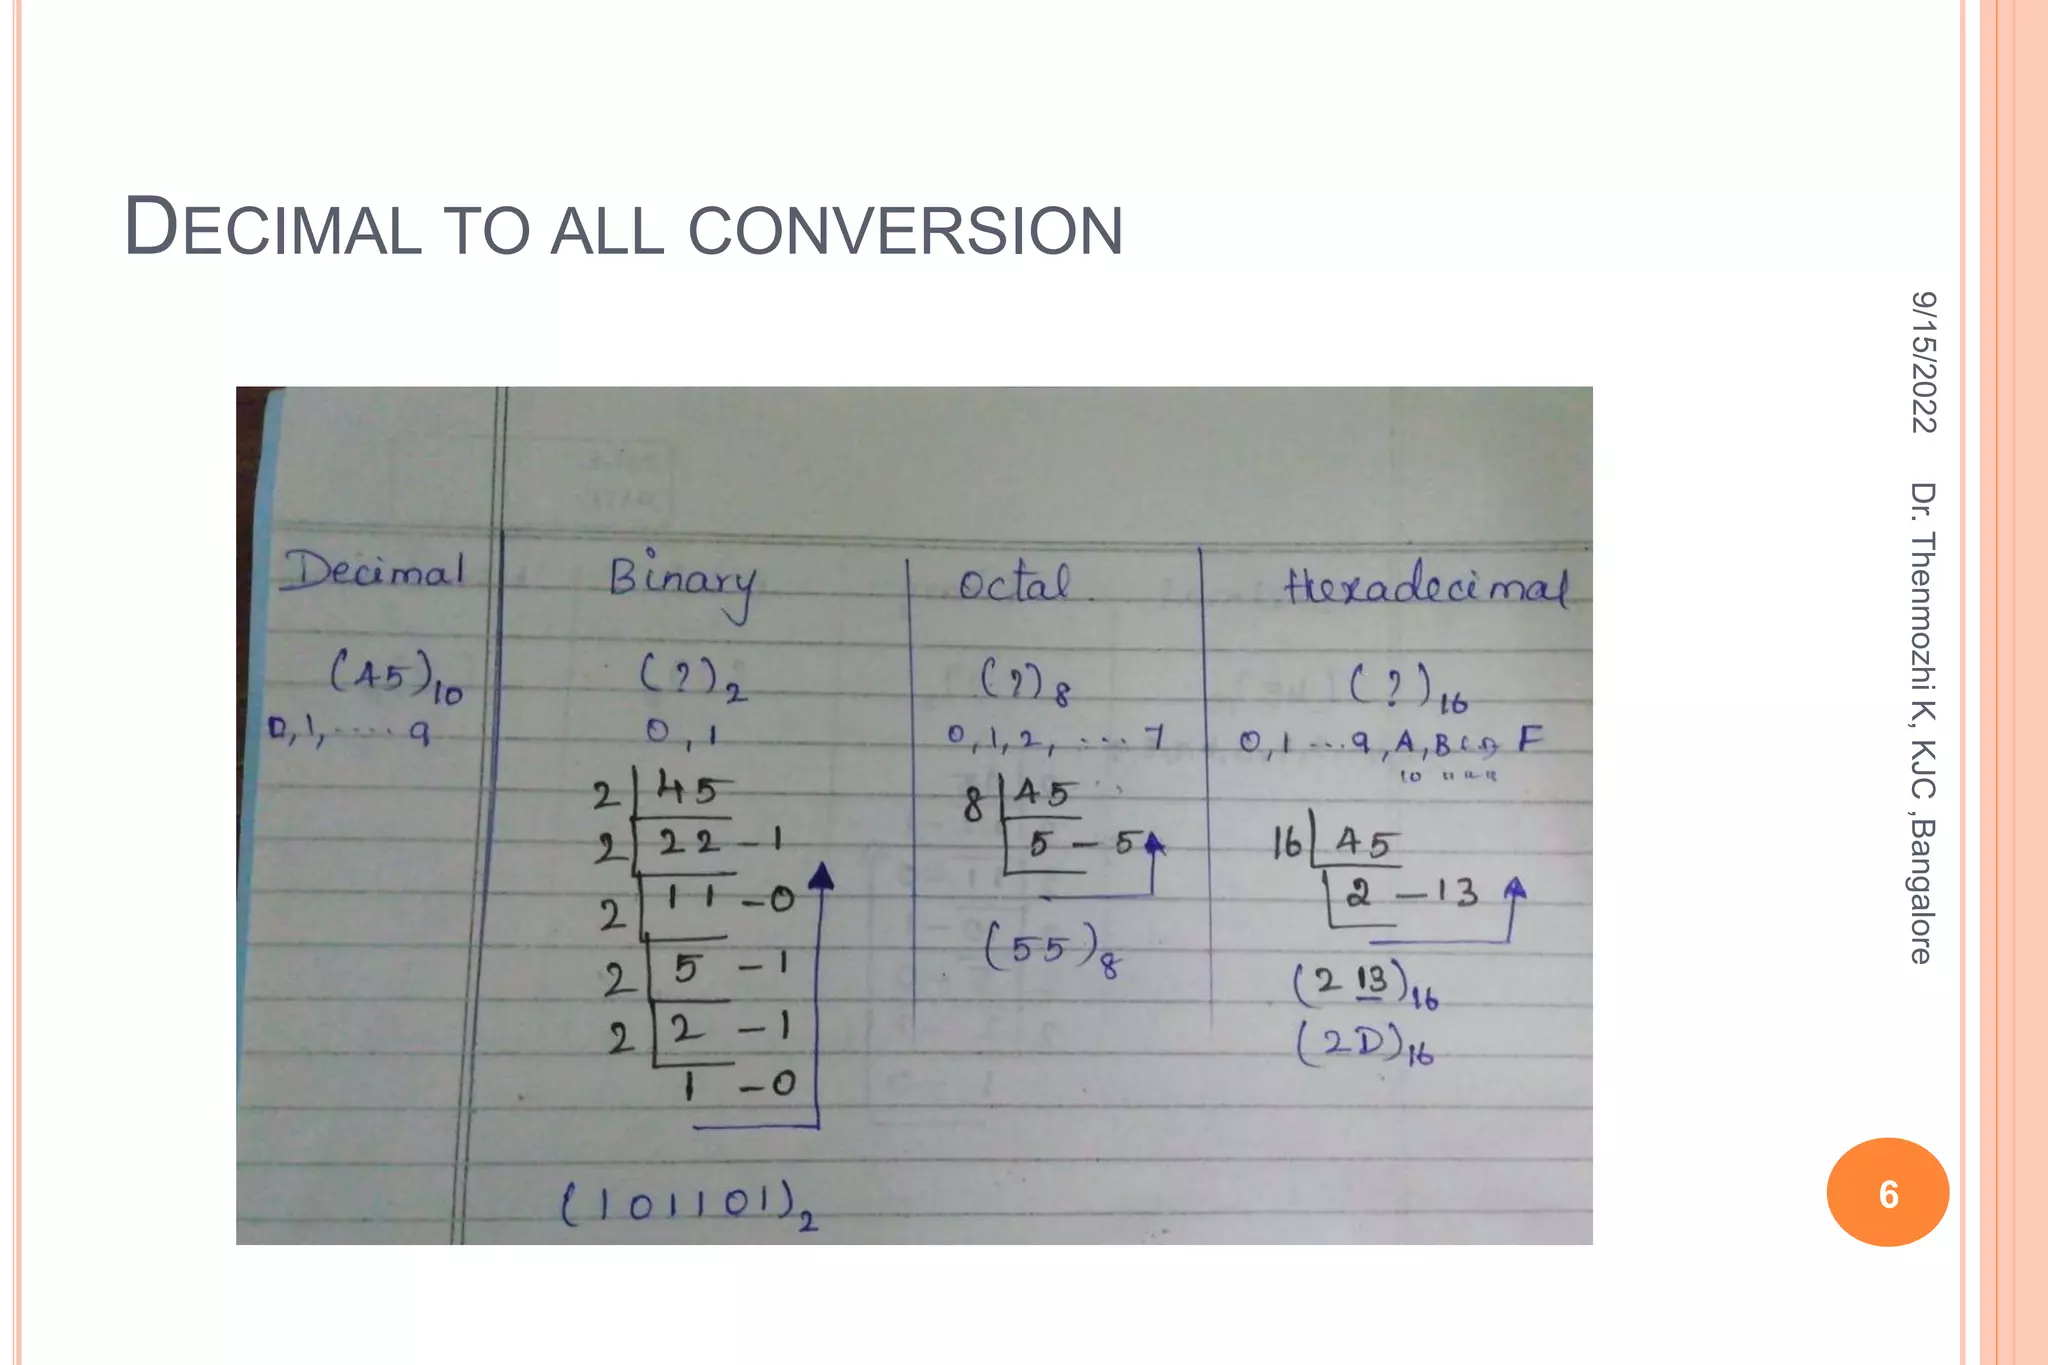 DECIMAL TO ALL CONVERSION
9/15/2022 Dr. Thenmozhi K, KJC ,Bangalore
Decimal Binary Octal Hexadecimal
(45)10 (?)2 (?)8 (?)16
0,1,.....9 0,1 0,1,2, ....7 0,1...9,A,B C D F
10 11
2 45
2 22 - 1
2 11 - 0
2 5 - 1
2 2 - 1
1 - 0
(101101)2
8 45
5 - 5
(55)8
16 45
2 - 13
(2 13)16
(2D)16
6